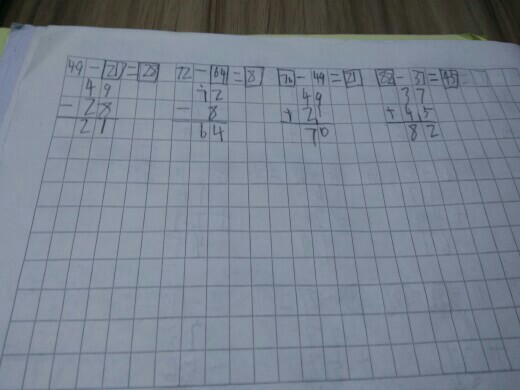 49 - 21 = 28 72 - 64 = 8 70 - 49 = 21 82 - 37 = 45
49 72 49 37
- 28 - 8 + 21 + 45
21 64 70 82